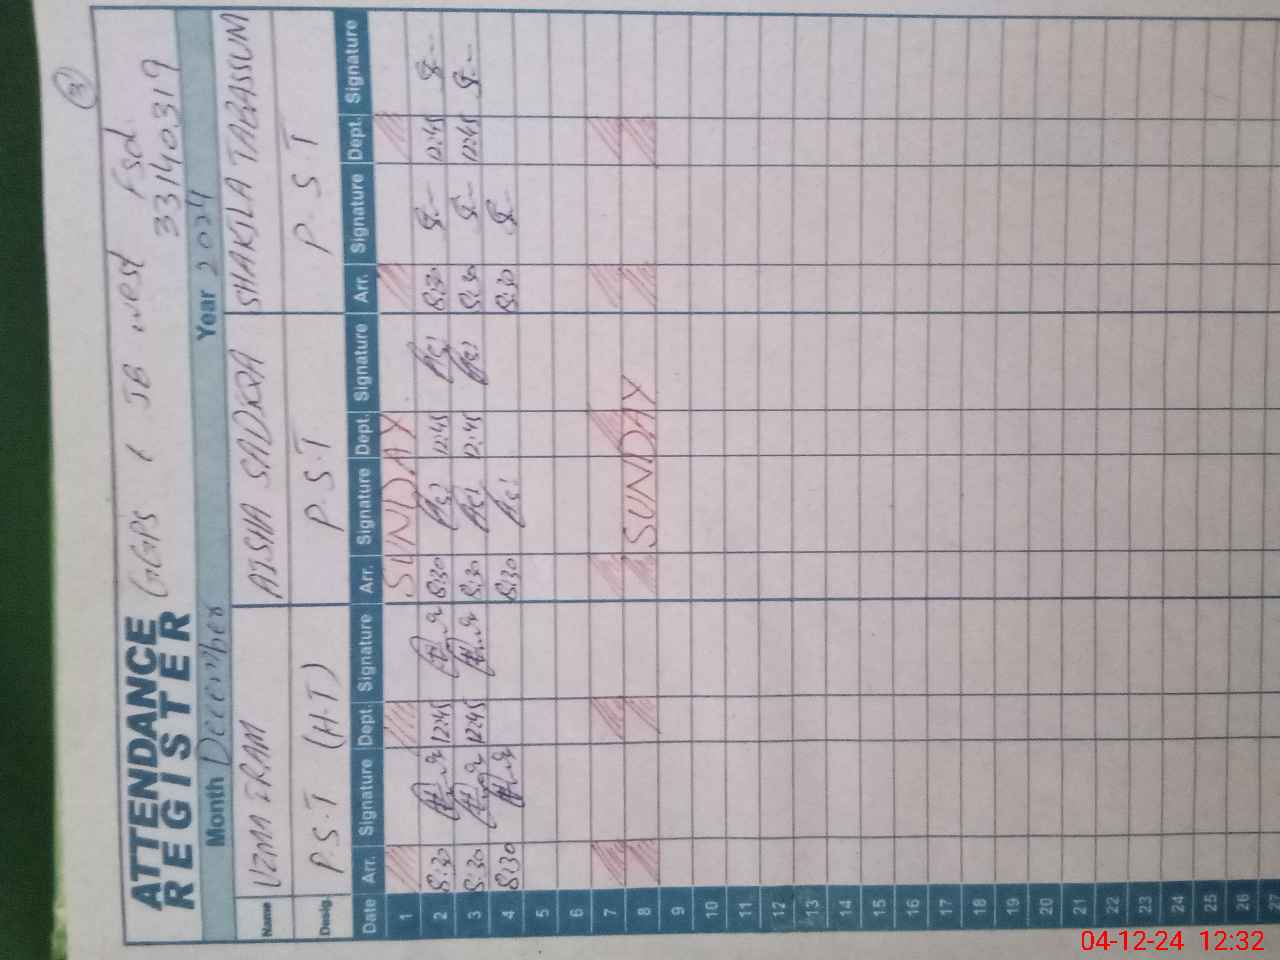 3
ATTENDANCE REGISTER GGPS 1 JB West Fsd.
33140319
Month December Year 2024
Name UZMA IRAM AISHA SADIQA SHAKILA TABASSUM
Desig. P.S.T (H.T) P.S.T P.S.T
Date Arr. Signature Dept. Signature Arr. Signature Dept. Signature Arr. Signature Dept. Signature
1 SUNDAY
2 8:30 12:45 8:30 12:45 8:30 12:45
3 8:30 12:45 8:30 12:45 8:30 12:45
4 8:30 8:30 8:30
5
6
7
8 SUNDAY
9
10
11
12
13
14
15
16
17
18
19
20
21
22
23
24
25
26
27
04-12-24 12:32